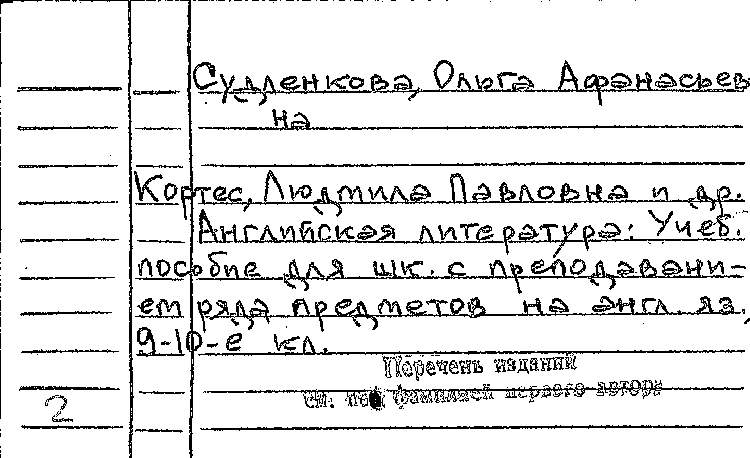 Судленкова, Ольга Афанасьев
на
Кортес, Людмила Павловна и др.
Английская литература: Учеб.
пособие для шк. с преподавани-
ем ряда предметов на англ. яз.
9-10-е кл.
Перечень изданий
см. под фамилией первого автора
2